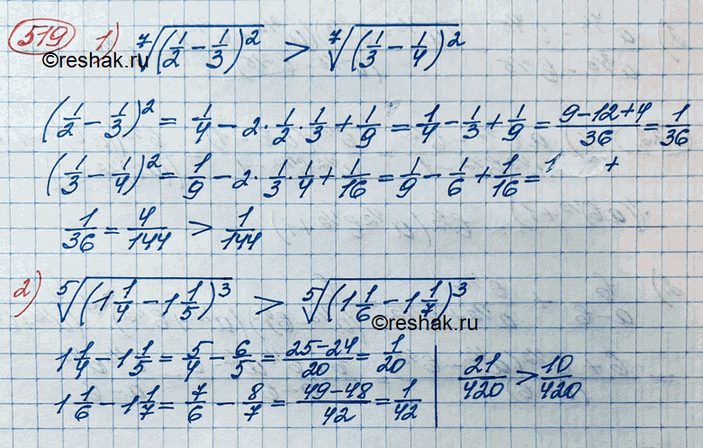 519 1) ⁷√(1/2 − 1/3)² > ⁷√(1/3 − 1/4)²
©reshak.ru
(1/2 − 1/3)² = 1/4 − 2·1/2·1/3 + 1/9 = 1/4 − 1/3 + 1/9 = (9−12+4)/36 = 1/36
(1/3 − 1/4)² = 1/9 − 2·1/3·1/4 + 1/16 = 1/9 − 1/6 + 1/16 = 1 +
1/36 = 4/144 > 1/144
2) ⁵√(1 1/4 − 1 1/5)³ > ⁵√(1 1/6 − 1 1/7)³
©reshak.ru
1 1/4 − 1 1/5 = 5/4 − 6/5 = (25−24)/20 = 1/20 | 21/420 > 10/420
1 1/6 − 1 1/7 = 7/6 − 8/7 = (49−48)/42 = 1/42